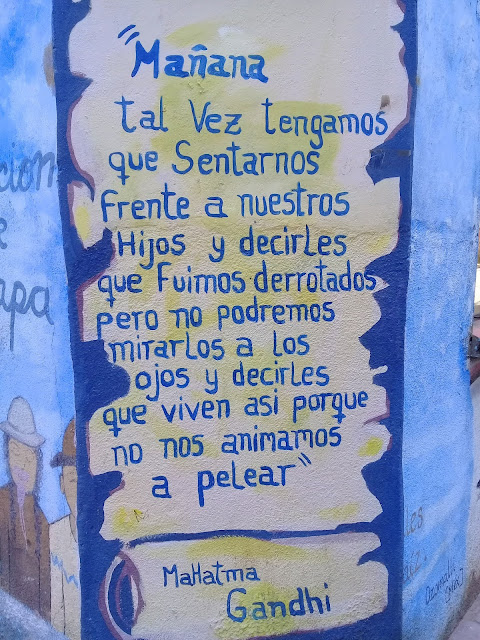 "Mañana
tal Vez tengamos
que Sentarnos
frente a nuestros
Hijos y decirles
que Fuimos derrotados
pero no podremos
mirarlos a los
ojos y decirles
que viven asi porque
no nos animamos
a pelear"
Mahatma
Gandhi
cion
apa